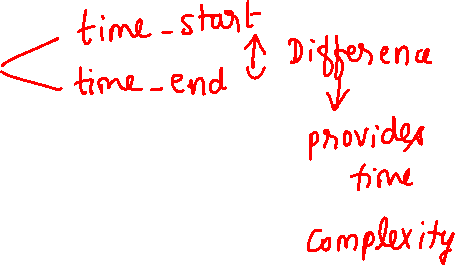 time_start
time_end
Difference
provides
time
Complexity